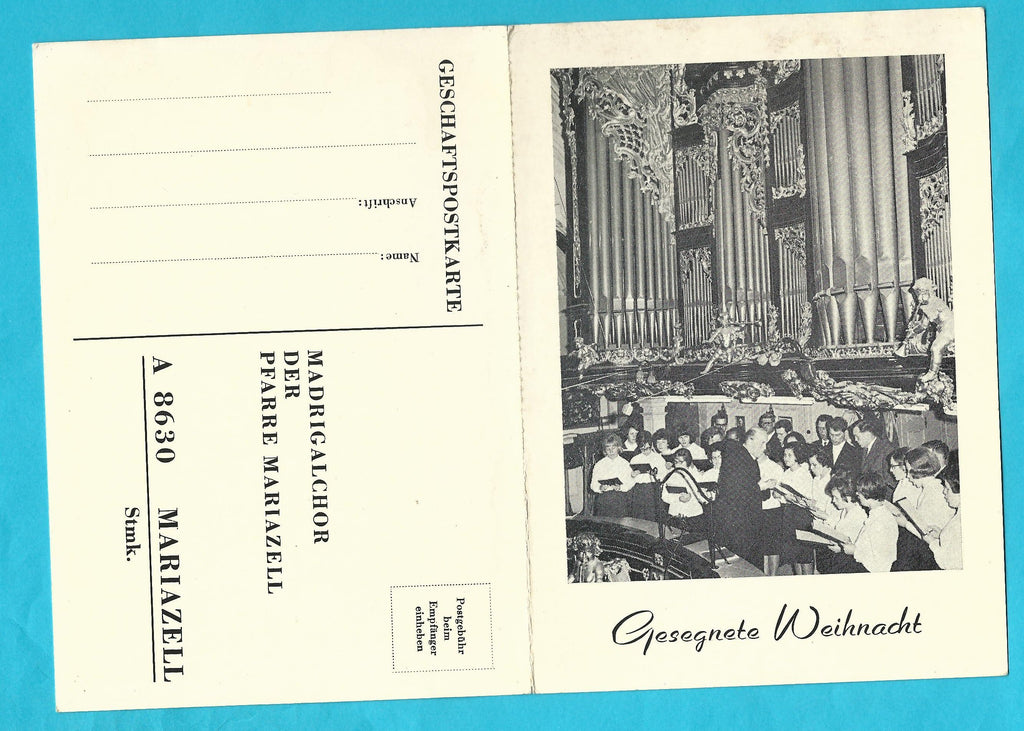 GESCHAFTSPOSTKARTE
Name:
Anschrift:
MADRIGALCHOR
DER
PFARRE MARIAZELL
A 8630 MARIAZELL
Stmk.
Postgebühr
beim
Empfänger
einheben
Gesegnete Weihnacht